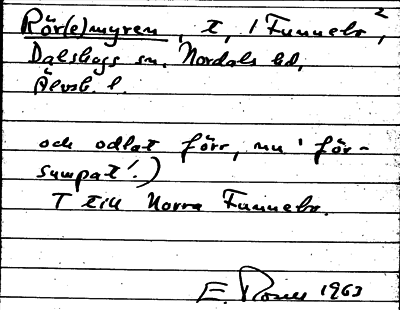 Rör(e)myren, t, i Funnebo²,
Dalskogs sn. Nordals hd,
Älvsb. l.
och odlat förr, nu 'för-
sumpat'.)
T till Norra Funnebo.
E. Rosell 1963